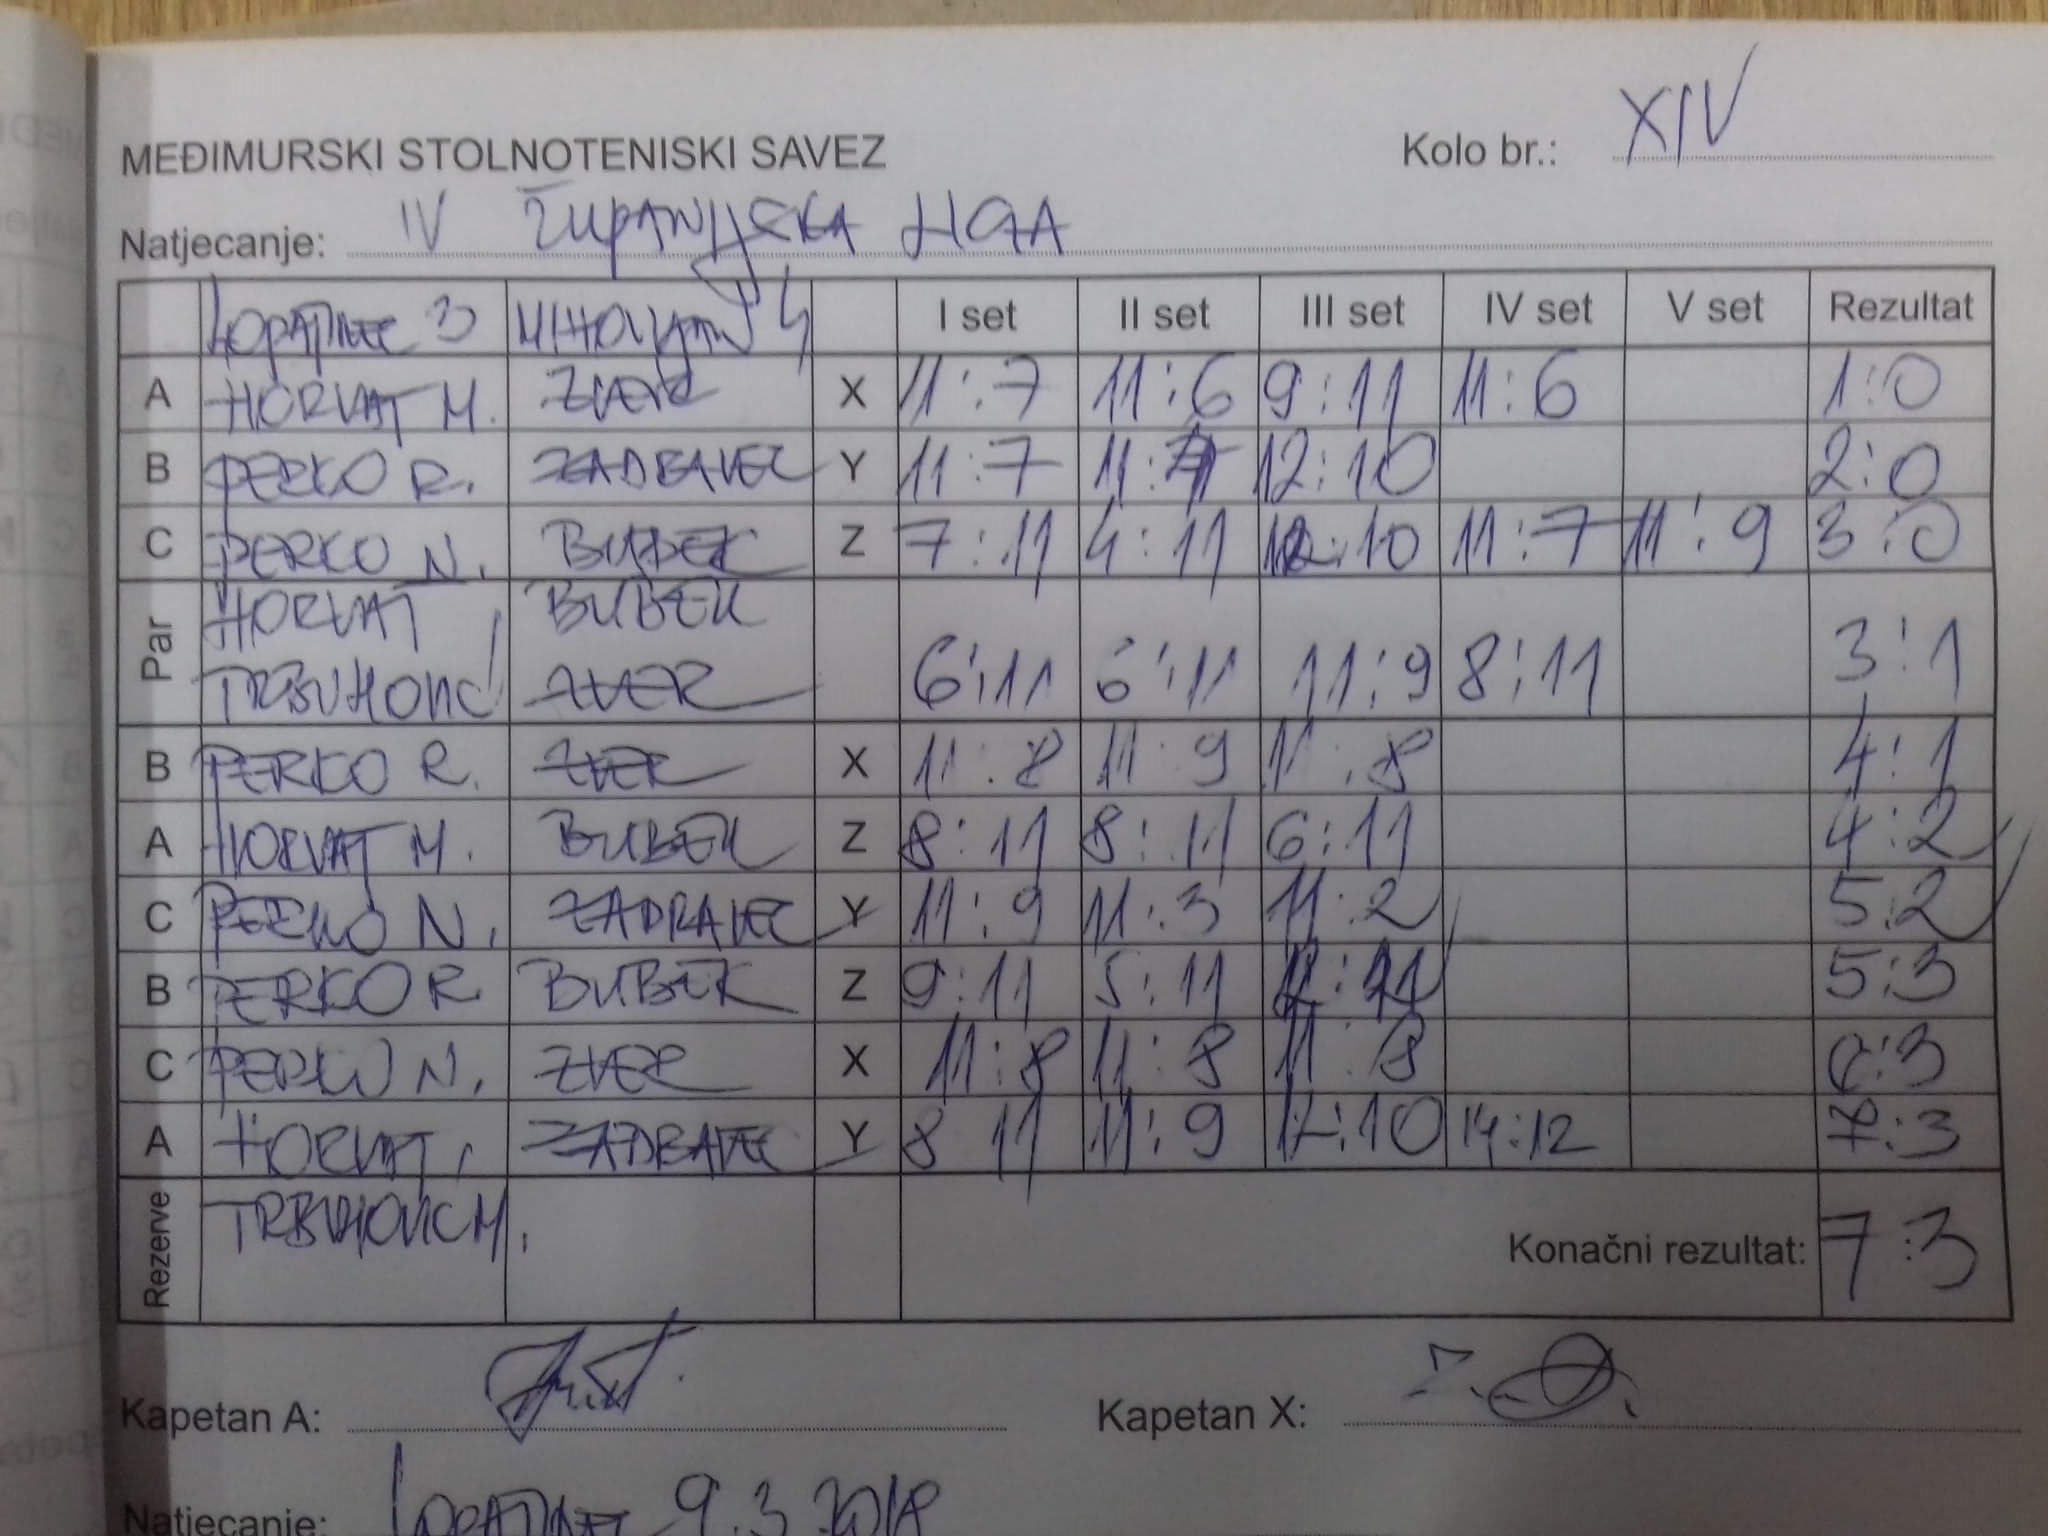 MEĐIMURSKI STOLNOTENISKI SAVEZ Kolo br.: XIV
Natjecanje: IV ŽUPANIJSKA LIGA
LOPATINEC 3 MIHOVLJAN 4 I set II set III set IV set V set Rezultat
A HORVAT M. ZVER X 11:7 11:6 9:11 11:6 1:0
B PERKO R. ZADRAVEC Y 11:7 11: 12:10 2:0
C PERKO N. BUBEK Z 7:11 4:11 12:10 11:7 11:9 3:0
Par HORVAT BUBEK
TRBUHOVIĆ ZVER 6:11 6:11 11:9 8:11 3:1
B PERKO R. ZVER X 11:8 11:9 11:8 4:1
A HORVAT M. BUBEK Z 8:11 8:11 6:11 4:2
C PERKO N. ZADRAVEC Y 11:9 11:3 11:2 5:2
B PERKO R BUBEK Z 9:11 5:11 5:3
C PERKO N. ZVER X 11:8 11:8 11:8 6:3
A HORVAT ZADRAVEC Y 8 11 11:9 12:10 14:12 7:3
Rezerve TRBUHOVIĆ M.
Konačni rezultat: 7:3
Kapetan A: Kapetan X:
Natjecanje: LOPATINEC 9.3.2018